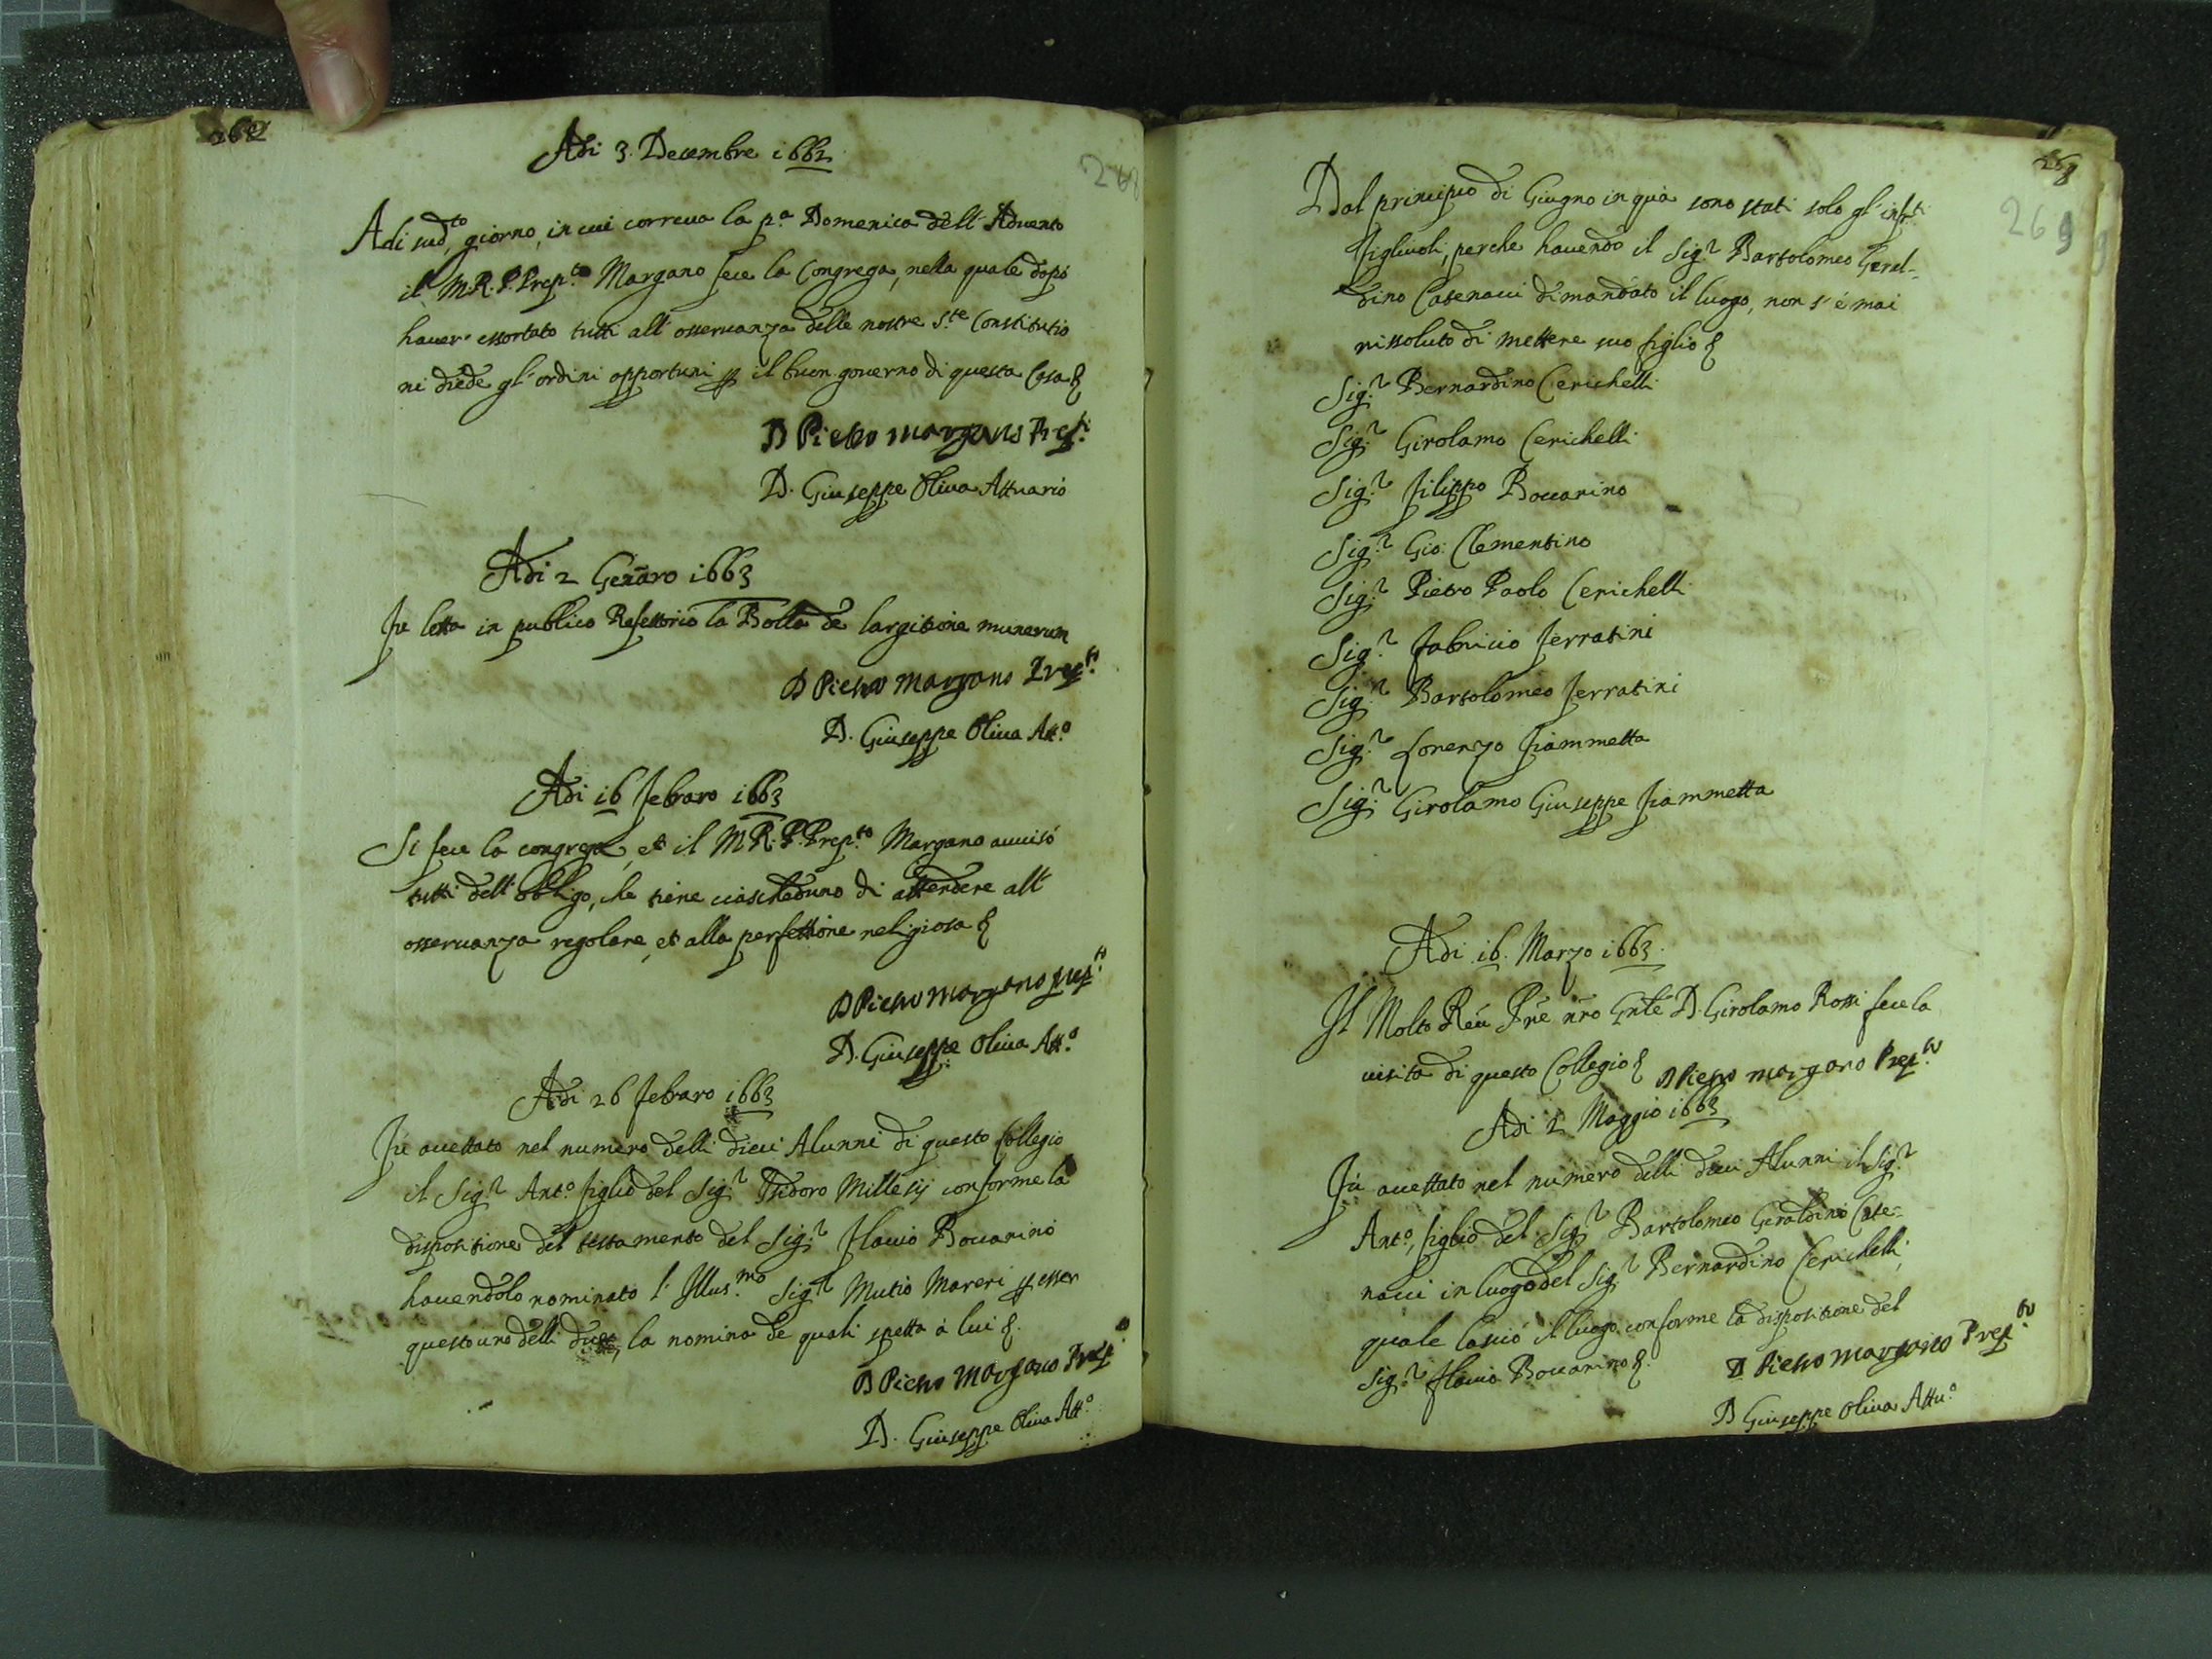 268
Adi 3. Decembre 1662
Adi sud.to giorno, in cui correua la p.a Domenica dell' Aduento
il M.R.P. Prep.to Margano fece la Congrega, nella quale dopò
hauer essortato tutti all' osseruanza delle nostre S.te Constitutio
ni diede gl' ordini opportuni p il buon gouerno di questa Casa &
D Pietro Margano Prep.to
D. Giuseppe Oliua Attuario
Adi 2 Gennaro 1663
Fu letta in publico Refettorio la Bolla de largitione munerum
D Pietro Margano Prep.to
D. Giuseppe Oliua Att.o
Adi 16 Febraro 1663
Si fece la congrega, et il M.R.P. Prep.to Margano auuisò
tutti dell' obbligo, che tiene ciascheduno di attendere all'
osseruanza regolare, et alla perfettione religiosa &
D Pietro Margano Prep.to
D. Giuseppe Oliua Att.o
Adi 26 Febraro 1663
Fù accettato nel numero delli dieci Alunni di questo Collegio
il Sig.r Ant.o figlio del Sig.r Isidoro Millesij conforme la
dispositione del testamento del Sig.r Flauio Boccarino
hauendolo nominato l' Illus.mo Sig.r Mutio Mareri p esser
questo uno delli, la nomina de quali spetta à lui &.
D Pietro Margano Prep.to
D. Giuseppe Oliua Att.o
269
Dal principio di Giugno in quà sono stati solo gl' infr.ti
figliuoli, perche hauendo il Sig.r Bartolomeo Geral-
dino Catenacci dimandato il luogo, non s' è mai
rissoluto di mettere suo figlio &
Sig.r Bernardino Cerichelli
Sig.r Girolamo Cerichelli
Sig.r Filippo Boccarino
Sig.r Gio: Clementino
Sig.r Pietro Paolo Cerichelli
Sig.r Fabricio Ferratini
Sig.r Bartolomeo Ferratini
Sig.r Lorenzo Fiammetta
Sig.r Girolamo Giuseppe Fiammetta
Adi 16. Marzo 1663.
Il Molto Reu Pre nro Gnle D. Girolamo Rossi fece la
uisita di questo Collegio & D Pietro Margano Prep.to
Adi 2 Maggio 1663
Fù accettato nel numero delli dieci Alunni il Sig.r
Ant.o, figlio del Sig.r Bartolomeo Geraldino Cate-
nacci in luogo del Sig.r Bernardino Cerichelli,
quale lasciò il luogo conforme la dispositione del
Sig.r Flauio Boccarino &.
D Pietro Margano Prep.to
D Giuseppe Oliua Attu.o